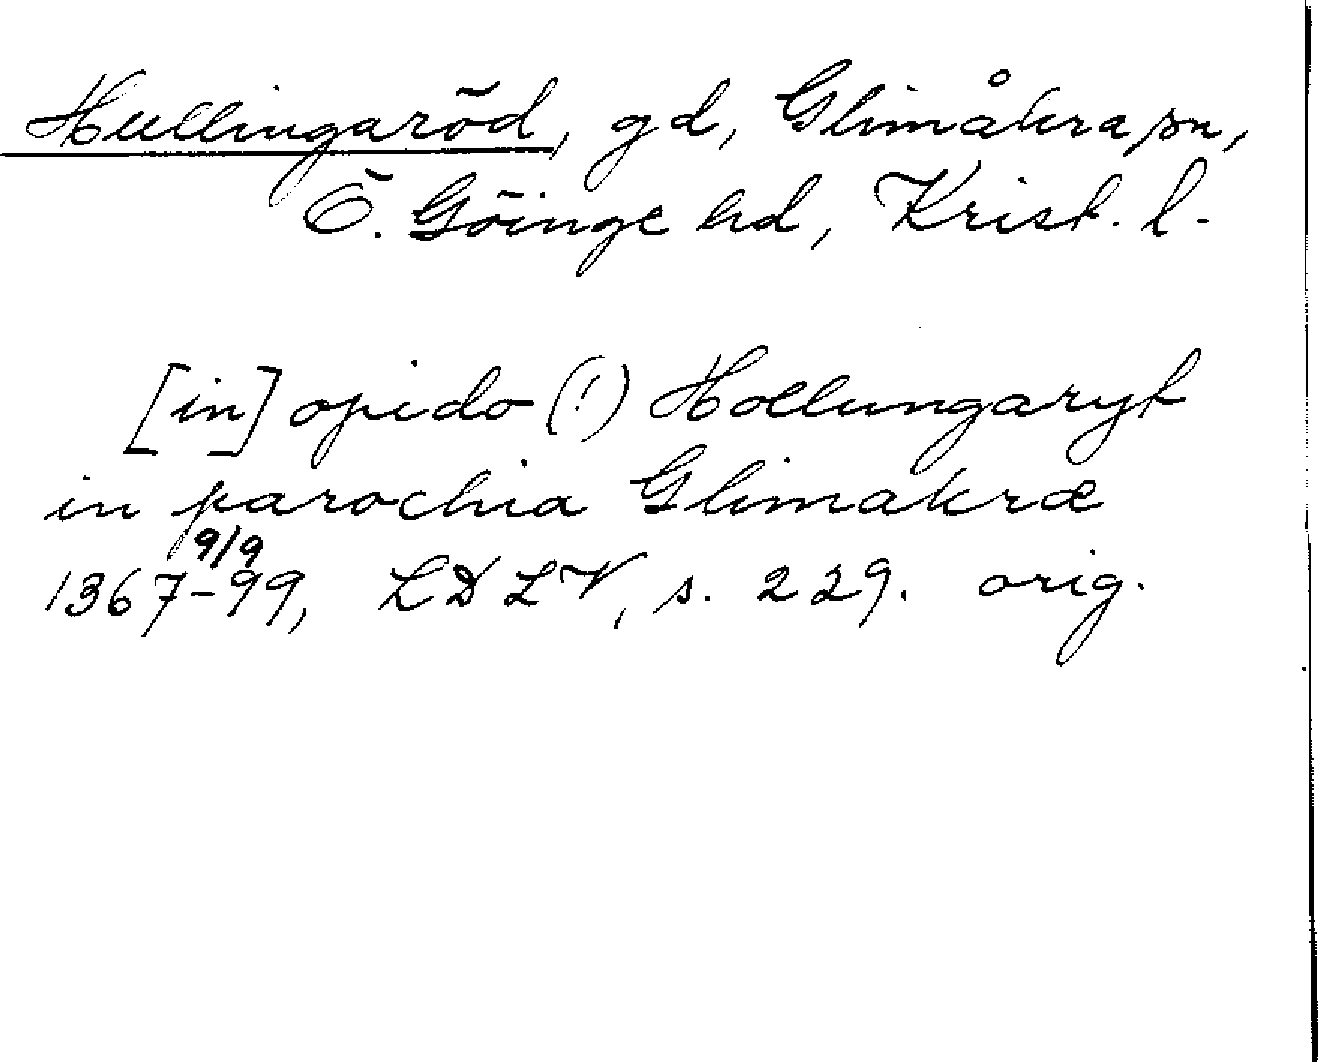 Hullingaröd, gd, Glimåkra sn,
Ö. Göinge hd, Krist. l.
[in] opido (!) Hollungaryt
in parochia Glimakræ
9/9
1367-99, LDLV, s. 229. orig.